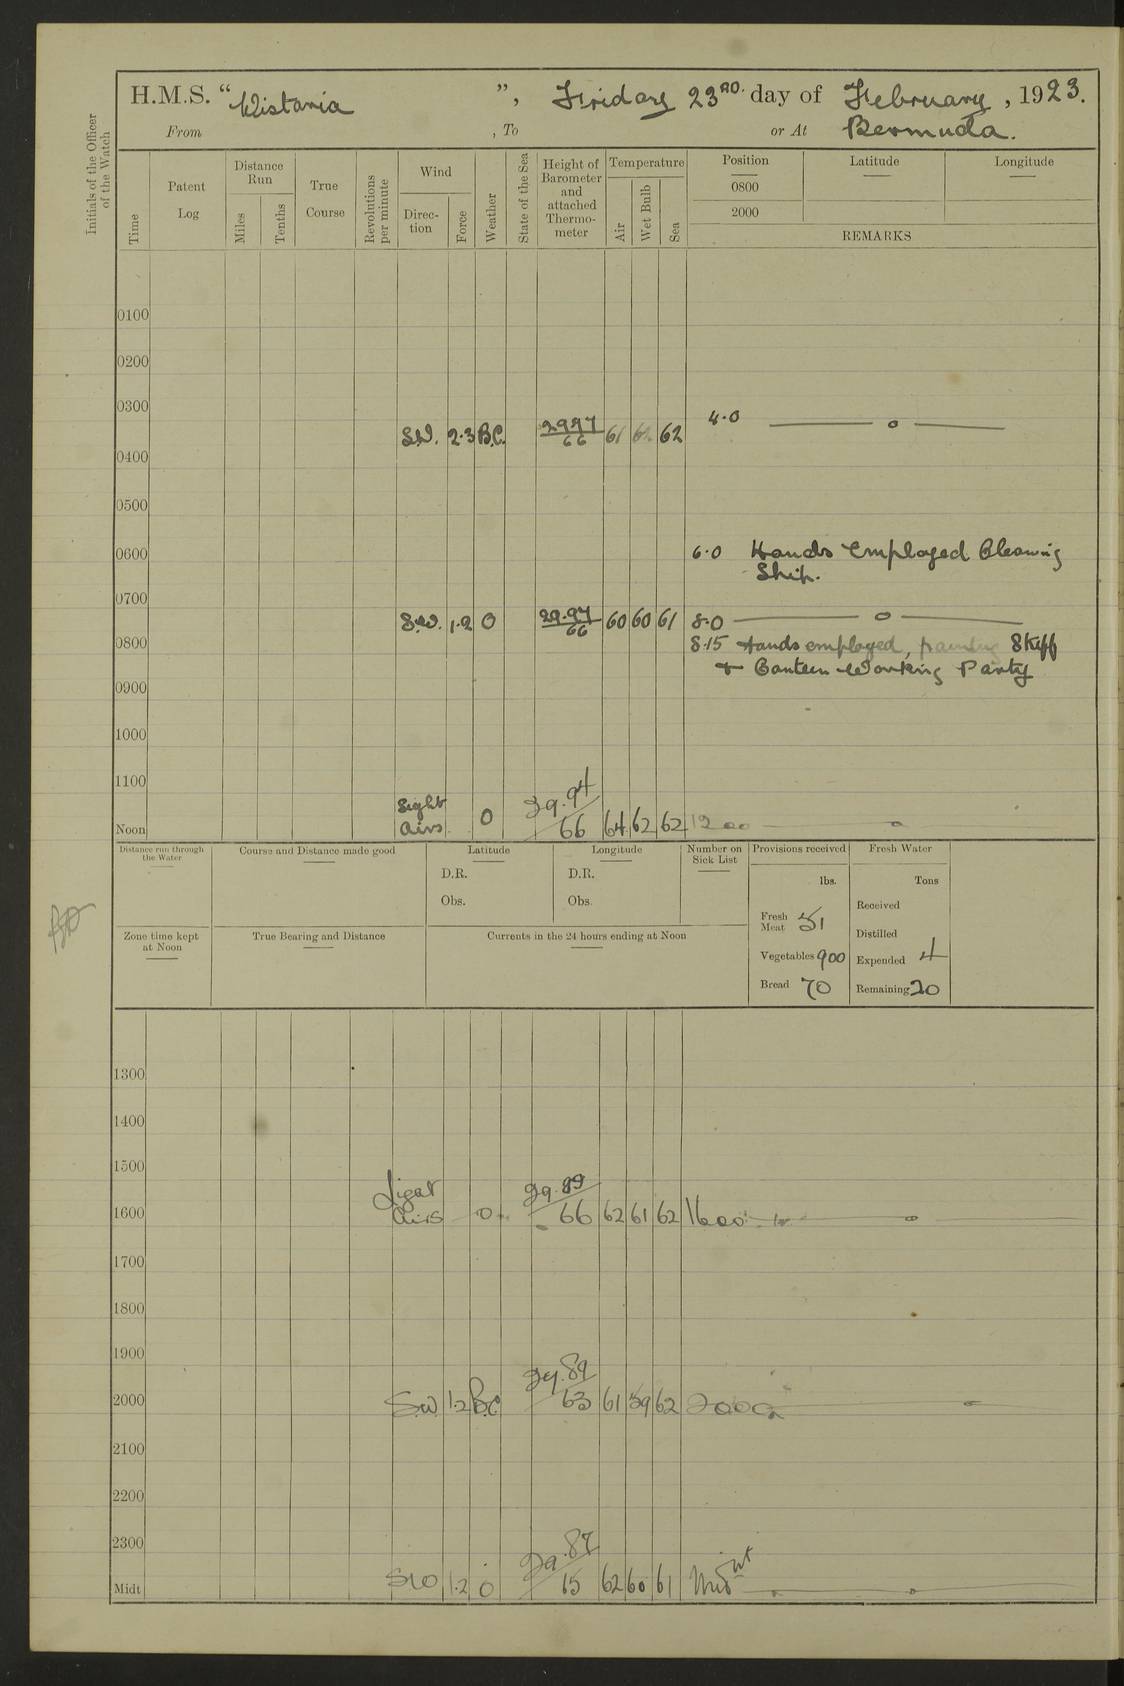 H.M.S. “Wistaria ”, Friday 23RD. day of February, 1923.
From , To or At Bermuda.
Initials of the Officer of the Watch
Time
Patent Log
Distance Run
Miles
Tenths
True Course
Revolutions per minute
Wind
Direction
Force
Weather
State of the Sea
Height of Barometer and attached Thermometer
Temperature
Air
Wet Bulb
Sea
Position Latitude Longitude
0800
2000
REMARKS
0100
0200
0300
S.W. 2.3 B.C. 29.97 66 61 62 4.0 —— o ——
0400
0500
0600 6.0 Hands employed Cleaning
Ship.
0700
S.W. 1.2 O 29.97 66 60 60 61 8.0 —— o ——
0800 8.15 Hands employed, painting Skiff
+ Canteen Working Party
0900
1000
1100
Light
Noon Airs. O 29.94 66 64 62 62 1200 —— o
Distance run through the Water
Course and Distance made good
Latitude
D.R.
Obs.
Longitude
D.R.
Obs.
Number on Sick List
Provisions received
lbs.
Fresh Meat 51
Vegetables 900
Bread 70
Fresh Water
Tons
Received
Distilled
Expended 4
Remaining 20
Zone time kept at Noon
True Bearing and Distance
Currents in the 24 hours ending at Noon
1300
1400
1500
Light
1600 Airs O 29.89 66 62 61 62 1600 —— o ——
1700
1800
1900
2000 S.W. 1.2 B.C. 29.89 63 61 59 62 2000 —— o ——
2100
2200
2300
Midt SW 1.2 O 29.87 65 62 60 61 Midnt —— o ——